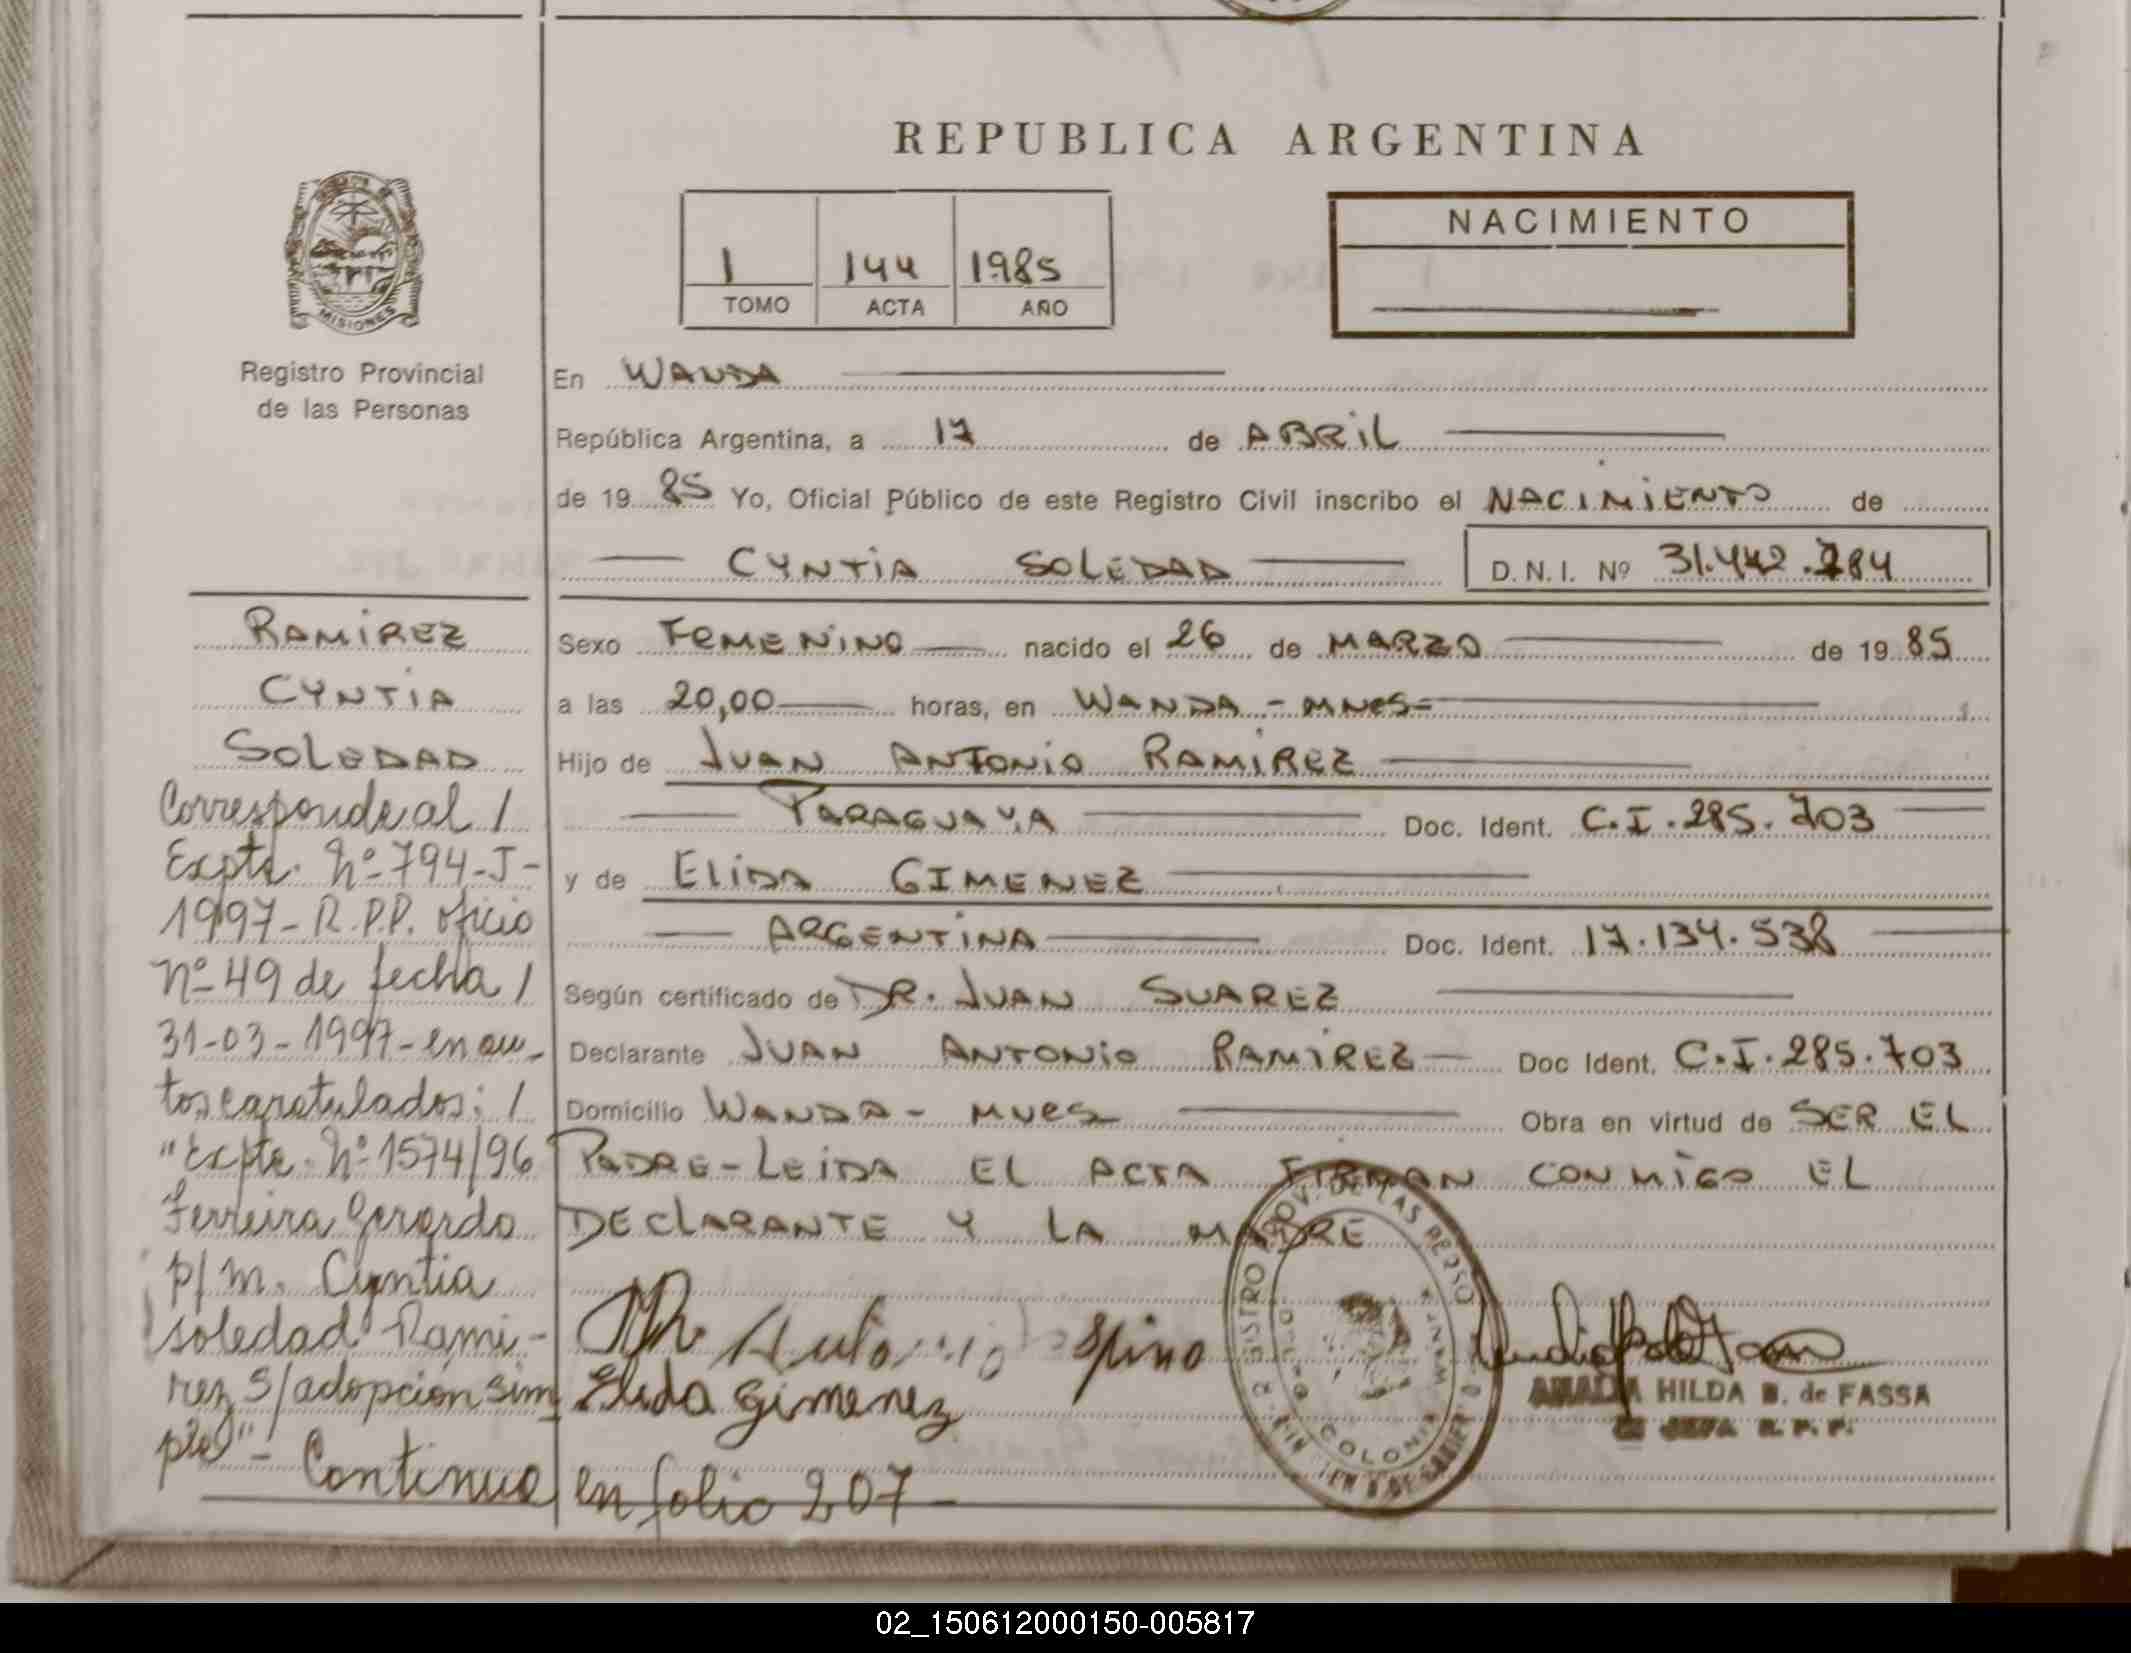 REPUBLICA ARGENTINA
1 144 1985
TOMO ACTA AÑO
NACIMIENTO
MISIONES
Registro Provincial
de las Personas
En WANDA
República Argentina, a 17 de ABRIL
de 19 85 Yo, Oficial Público de este Registro Civil inscribo el NACIMIENTO de
CYNTIA SOLEDAD D.N.I. Nº 31.442.784
RAMIREZ
CYNTIA
SOLEDAD
Corresponde al /
Expte. Nº 794-J-
1997- R.P.P. oficio
Nº 49 de fecha /
31-03-1997- en au-
tos caratulados: /
"Expte. Nº 1574/96
Ferreira Gerardo
p/m. Cyntia
Soledad Rami-
rez S/adopción sim
ple"-
Sexo FEMENINO nacido el 26 de MARZO de 19 85
a las 20,00 horas, en WANDA - MNES=
Hijo de JUAN ANTONIO RAMIREZ
PARAGUAYA Doc. Ident. C.I.285.703
y de ELIDA GIMENEZ
ARGENTINA Doc. Ident. 17.134.538
Según certificado de DR. JUAN SUAREZ
Declarante JUAN ANTONIO RAMIREZ Doc Ident. C.I.285.703
Domicilio WANDA - MNES Obra en virtud de SER EL
PADRE-LEIDA EL ACTA FIRMAN CONMIGO EL
DECLARANTE Y LA MADRE
Elida Gimenez
AMALIA HILDA B. de FASSA
JEFA R. P. P.
Continua en folio 207-
02_150612000150-005817